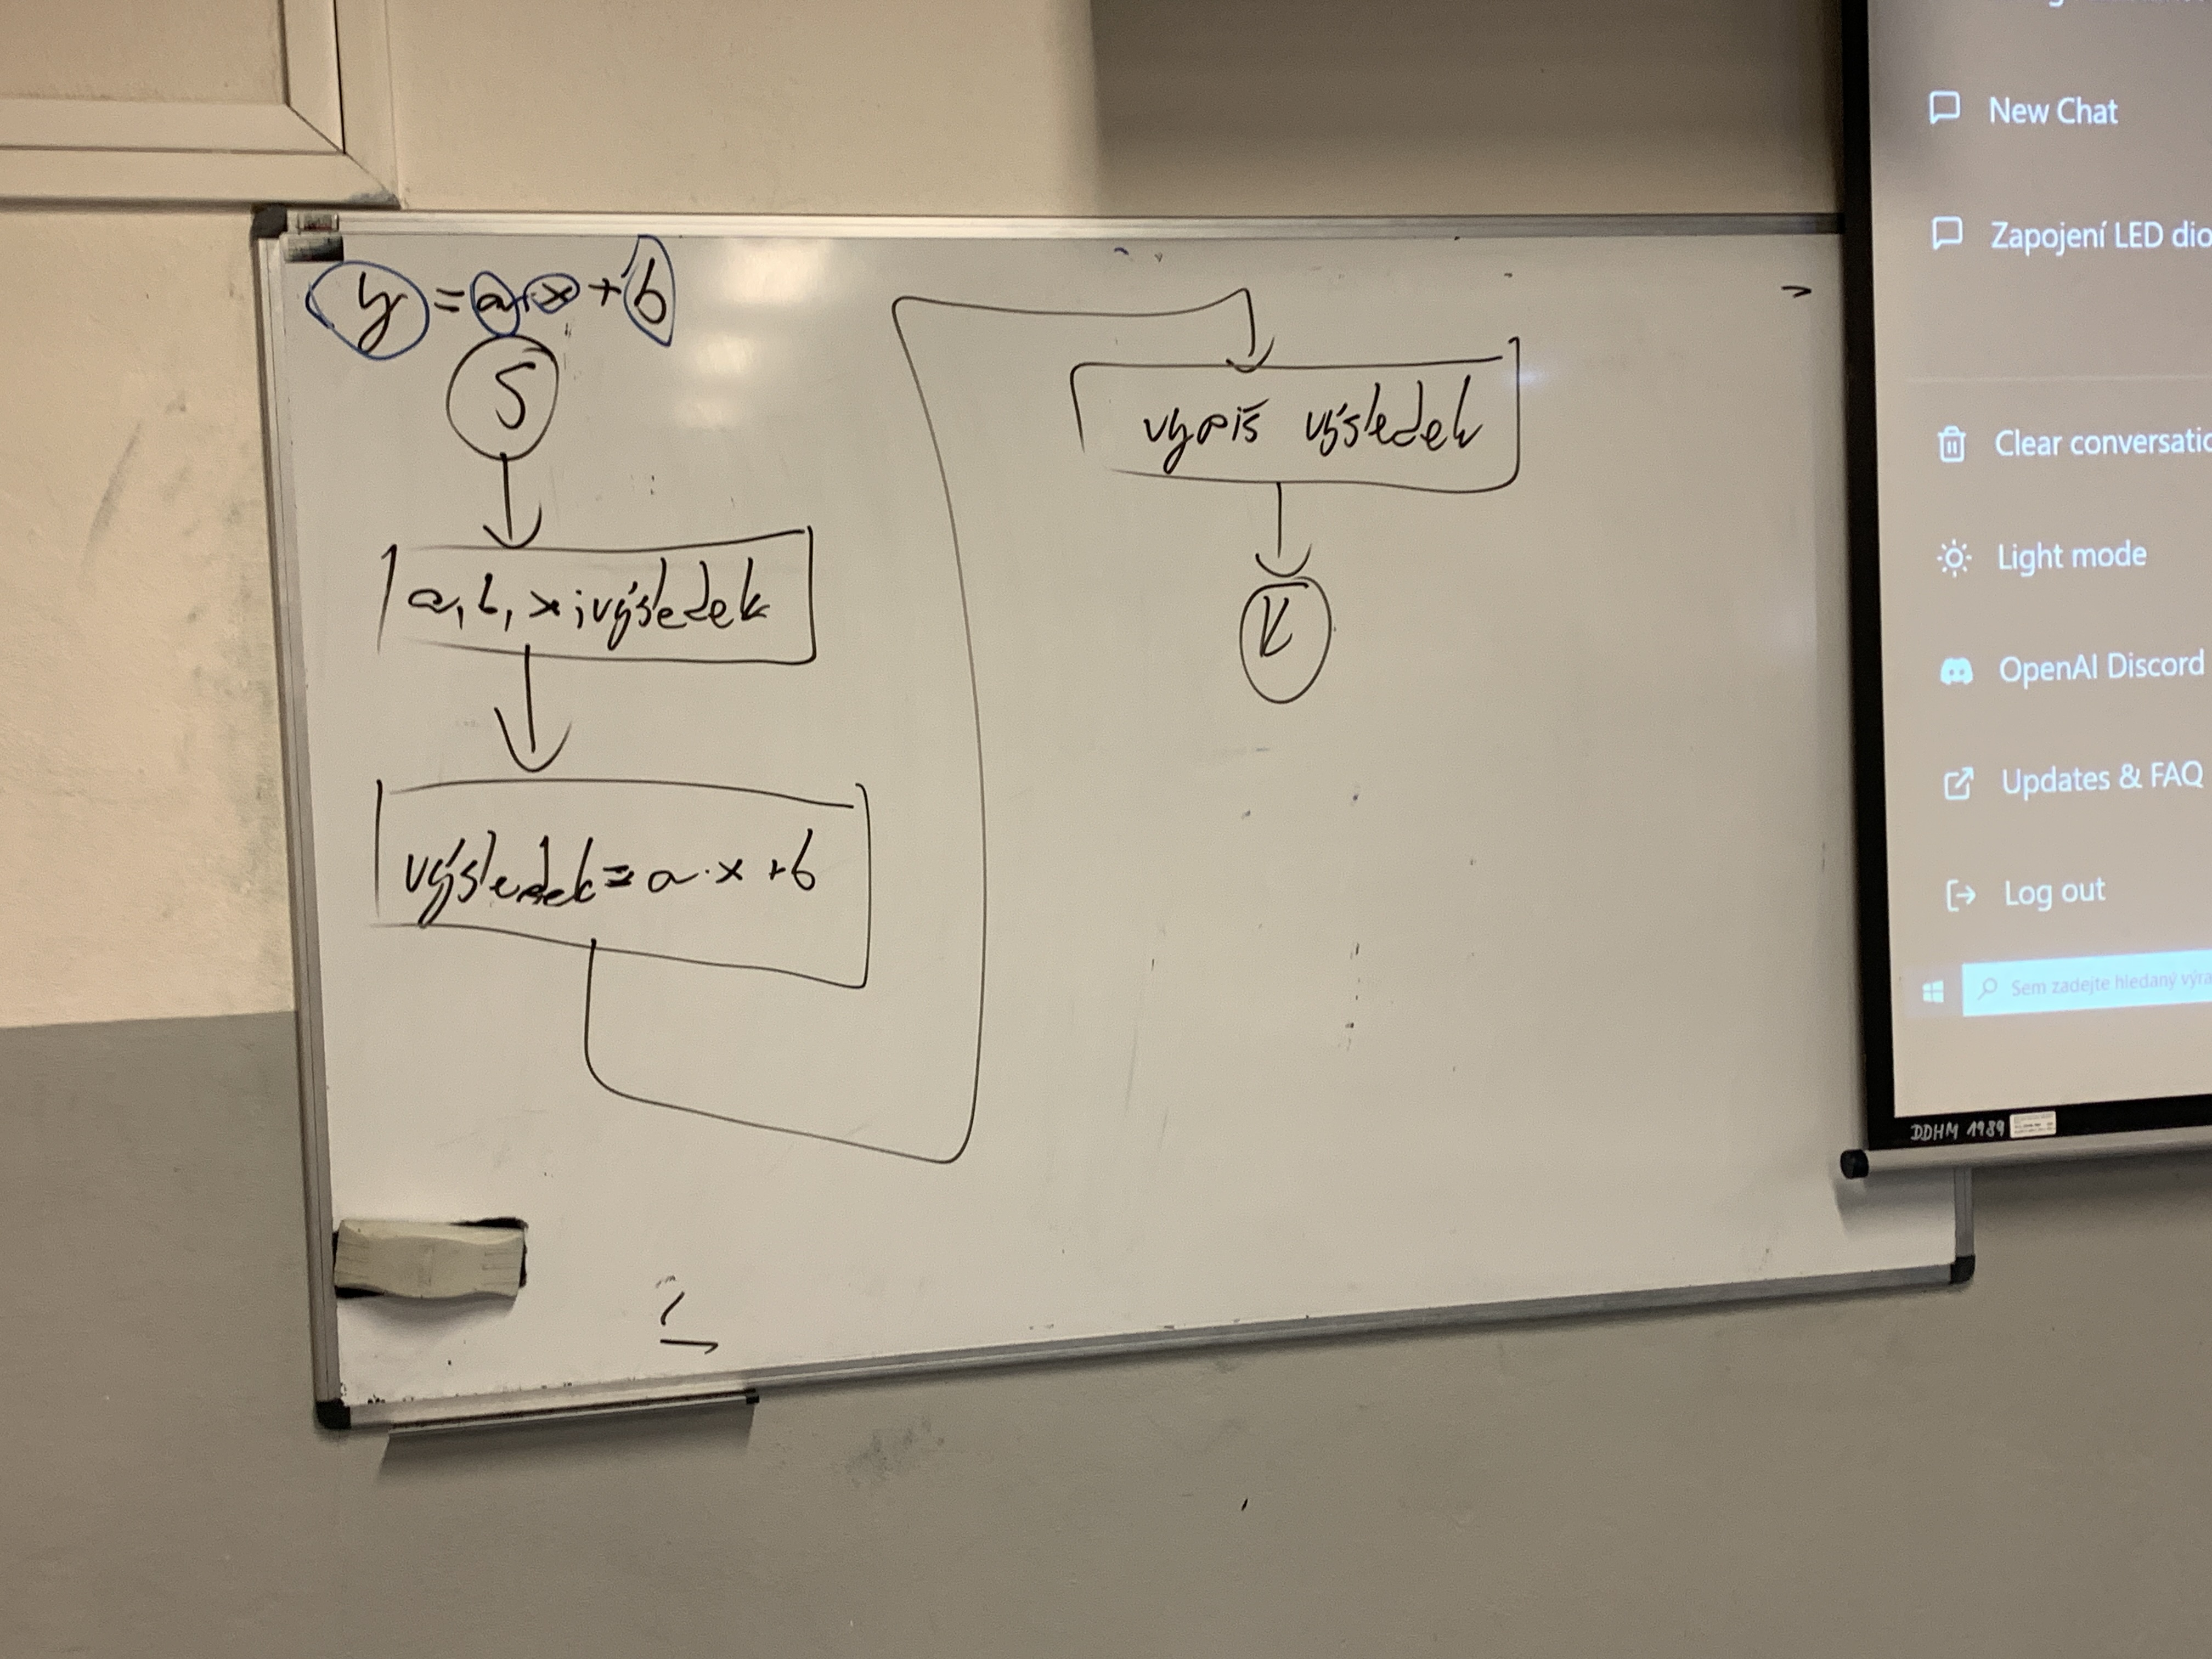 y = a·x + b
S
a, b, x ; výsledek
výsledek = a·x + b
vypiš výsledek
K
New Chat
Zapojení LED dio
Clear conversatio
Light mode
OpenAI Discord
Updates & FAQ
Log out
Sem zadejte hledaný výra
DDHM 1989